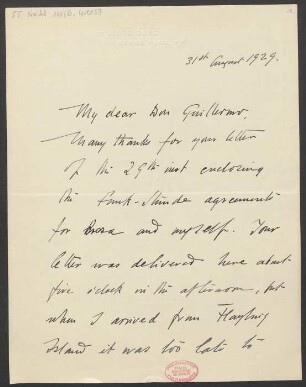 31st August 1929.
My dear Don Guillermo,
Many thanks for your letter
of the 29th inst enclosing
the Funk-Shinde agreements
for Rosa and myself. Your
letter was delivered here about
five o'clock in the afternoon, but
when I arrived from Hayling
Island it was too late to